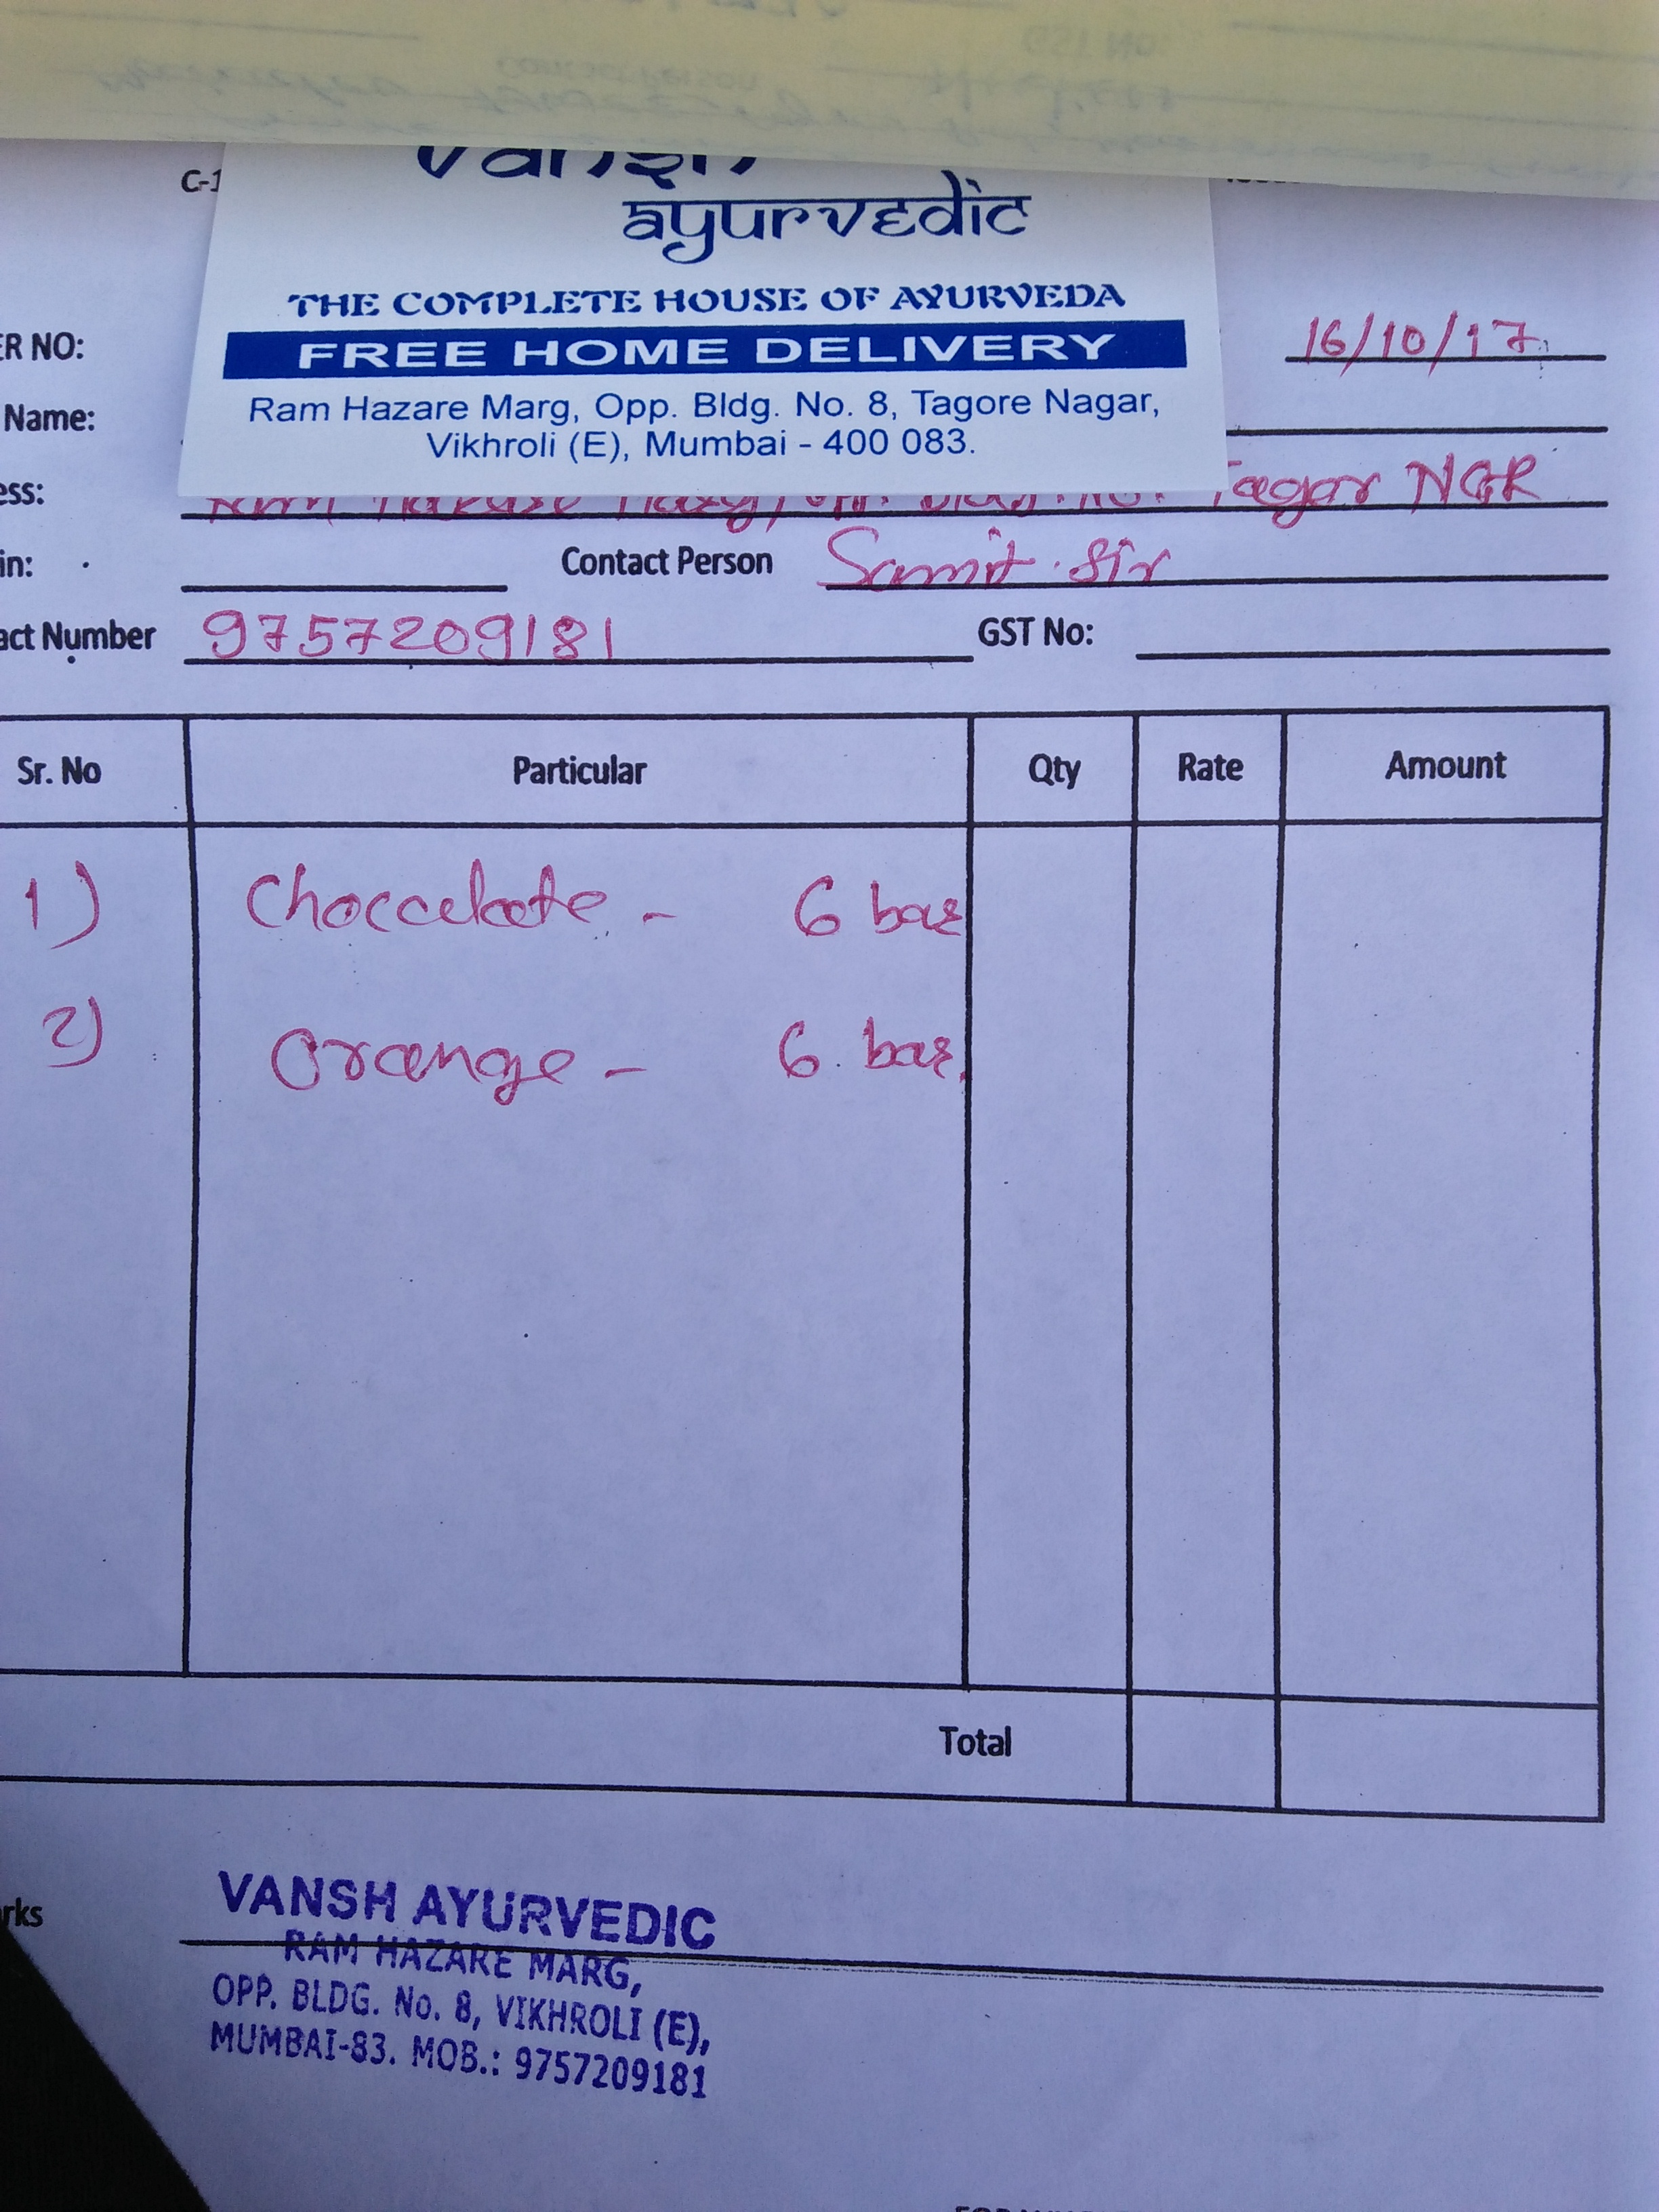 C-1
Vansh
ayurvedic
THE COMPLETE HOUSE OF AYURVEDA
FREE HOME DELIVERY
Ram Hazare Marg, Opp. Bldg. No. 8, Tagore Nagar,
Vikhroli (E), Mumbai - 400 083.
ER NO: 16/10/17
Name:
ess: Tagar NGR
in: Contact Person Samit. Sir
act Number 9757209181 GST No:
Sr. No Particular Qty Rate Amount
1) Choccelate - 6 bar
2) Orange - 6. bar.
Total
rks
VANSH AYURVEDIC
RAM HAZARE MARG,
OPP. BLDG. No. 8, VIKHROLI (E),
MUMBAI-83. MOB.: 9757209181